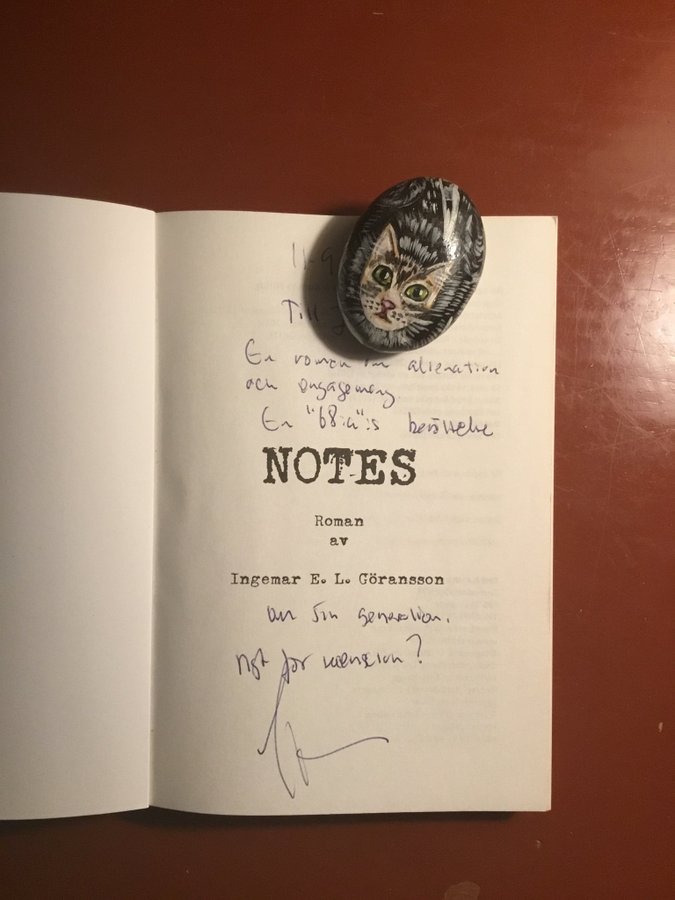 11-9
Till
En roman om alienation
och engagemang
En "68:a":s berättelse
NOTES
Roman
av
Ingemar E. L. Göransson
om sin generation.
Ngt för recension?